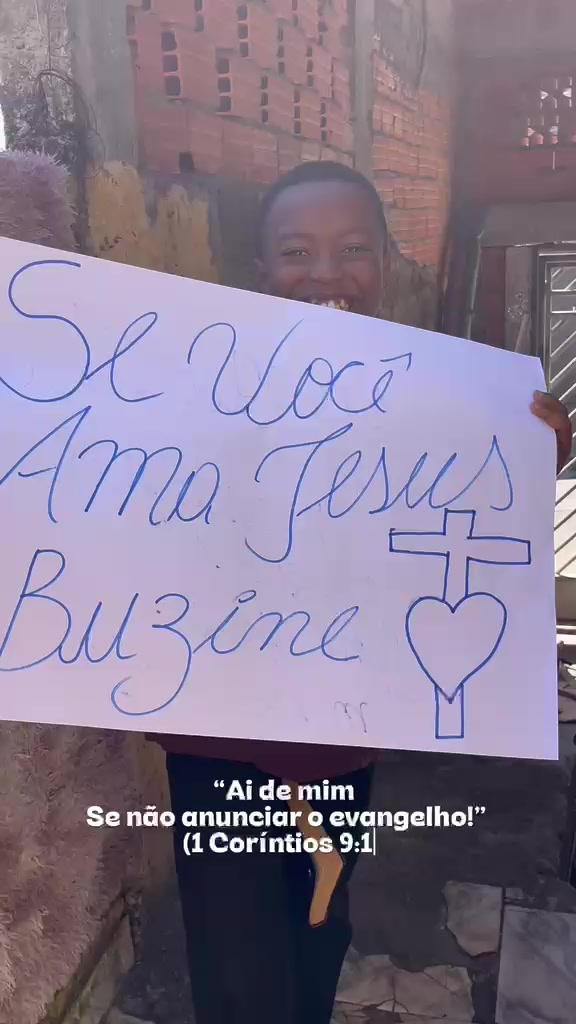 Se Você
Ama Jesus
Buzine
“Ai de mim
Se não anunciar o evangelho!”
(1 Coríntios 9:1